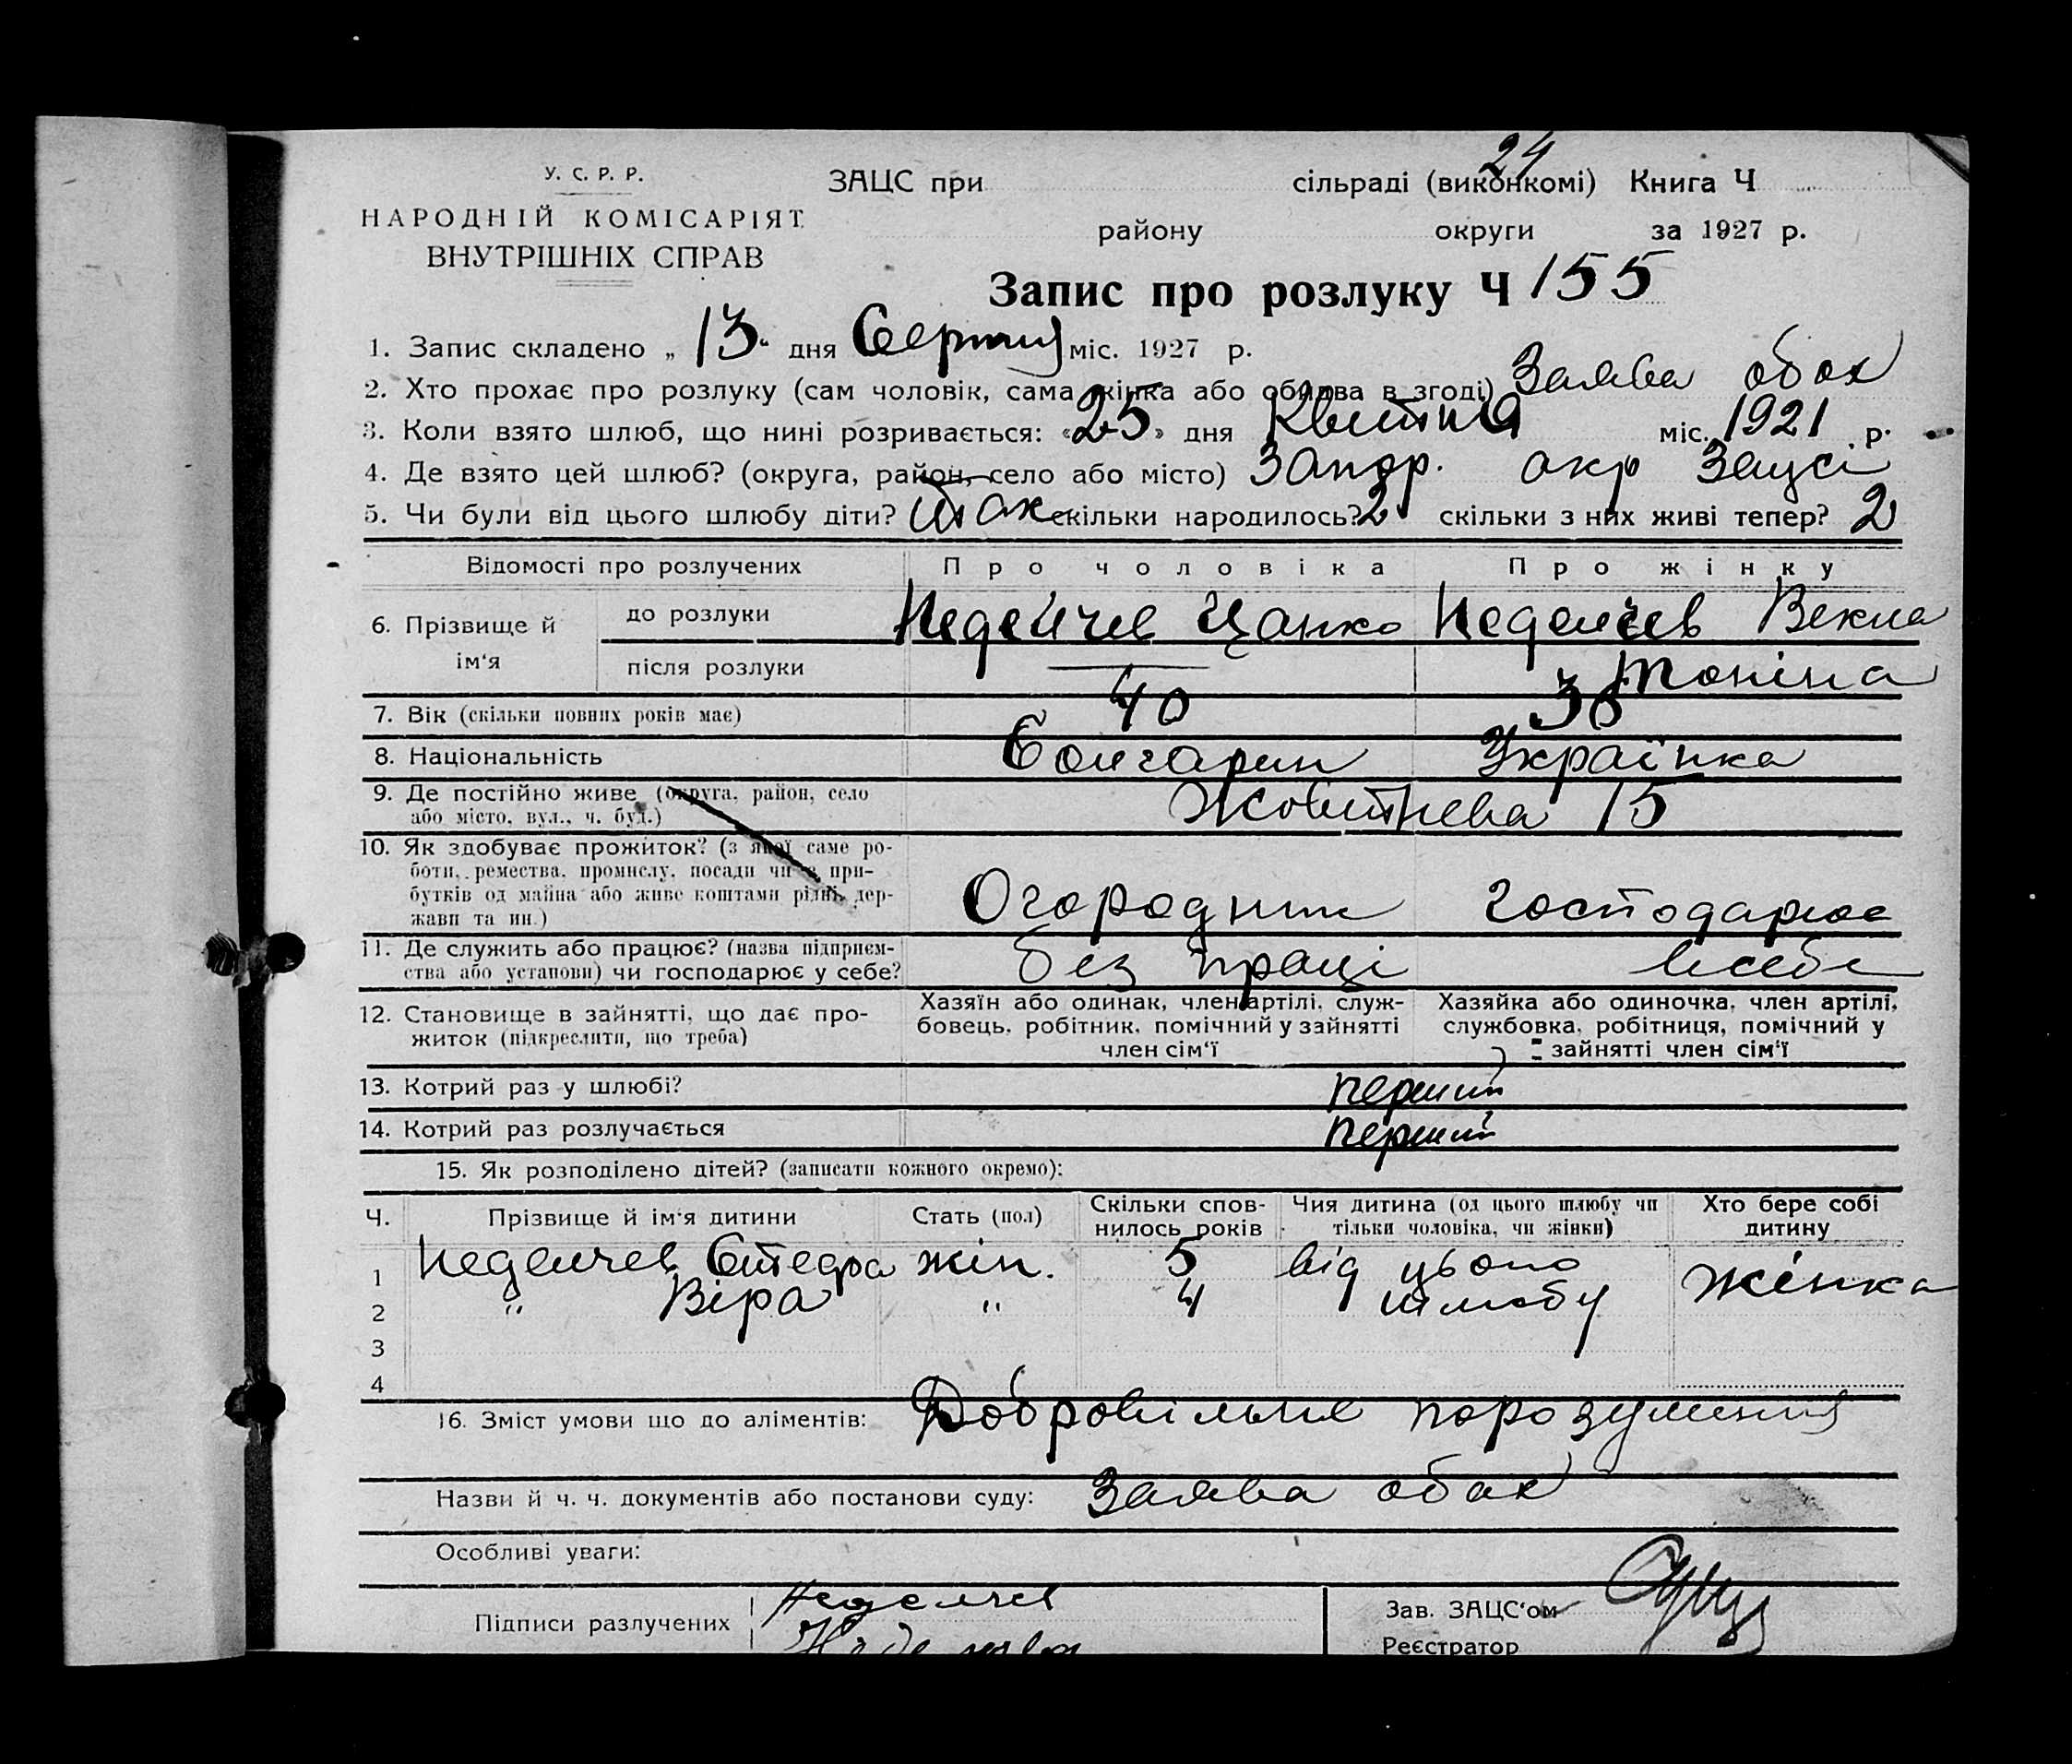 24
У. С. Р. Р.
ЗАЦС при сільраді (виконкомі) Книга Ч
НАРОДНІЙ КОМІСАРІЯТ
ВНУТРІШНІХ СПРАВ
району округи за 1927 р.
Запис про розлуку Ч 155
1. Запис складено „ 13 “ дня Серпня міс. 1927 р.
2. Хто прохає про розлуку (сам чоловік, сама жінка або обидва в згоді) Заява обох
3. Коли взято шлюб, що нині розривається: «25» дня Квітня міс. 1921 р.
4. Де взято цей шлюб? (округа, район, село або місто) Запор. окр Зацсі
5. Чи були від цього шлюбу діти? так скільки народилось? 2 скільки з них живі тепер? 2
Відомості про розлучених Про чоловіка Про жінку
6. Прізвище й ім‘я до розлуки Неделчев Цанко Неделчев Векла
після розлуки — Тоніна
7. Вік (скільки повних років має) 40 36
8. Національність Болгарин Українка
9. Де постійно живе (округа, район, село
або місто, вул., ч. буд.) Жовтнева 15
10. Як здобуває прожиток? (з якої саме ро-
боти, ремества, промислу, посади чи з при-
бутків од майна або живе коштами рідні, дер-
жави та ин.) Огородник Господарює
11. Де служить або працює? (назва підприєм-
ства або установи) чи господарює у себе? без праці в себе
12. Становище в зайнятті, що дає про-
житок (підкреслити, що треба)
Хазяїн або одинак, член артілі, служ-
бовець, робітник, помічний у зайнятті
член сім‘ї
Хазяйка або одиночка, член артілі,
службовка, робітниця, помічний у
зайнятті член сім‘ї
13. Котрий раз у шлюбі? перший
14. Котрий раз розлучається перший
15. Як розподілено дітей? (записати кожного окремо):
Ч. Прізвище й ім‘я дитини Стать (пол) Скільки спов-
нилось років Чия дитина (од цього шлюбу чи
тільки чоловіка, чи жінки) Хто бере собі
дитину
1 Неделчев жін. 5 від цього Жінка
2 " Віра " 4 шлюбу
3
4
16. Зміст умови що до аліментів: Добровільне порозуміння
Назви й ч. ч. документів або постанови суду: Заява обох
Особливі уваги:
Підписи разлучених Неделчев
Зав. ЗАЦС‘ом
Реєстратор